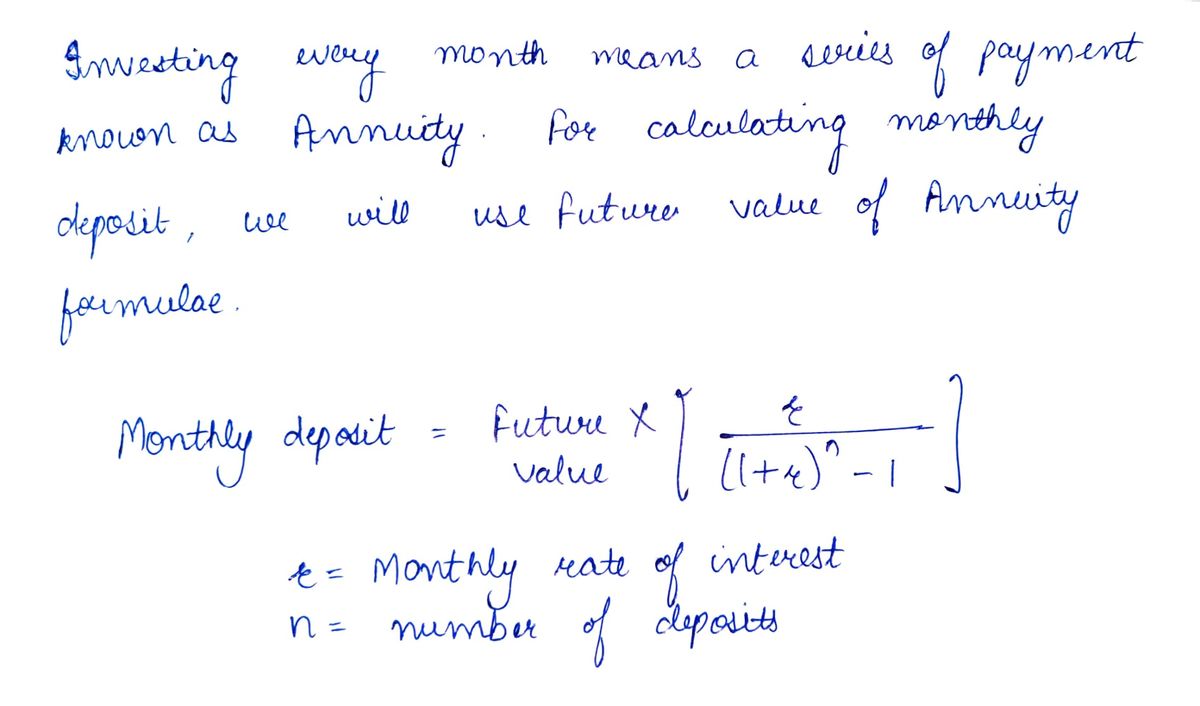 Investing every month means a series of payment
known as Annuity. For calculating monthly
deposit, we will use future value of Annuity
formulae.
Monthly deposit = Future value × [ r / ((1+r)^n - 1) ]
r = Monthly rate of interest
n = number of deposits